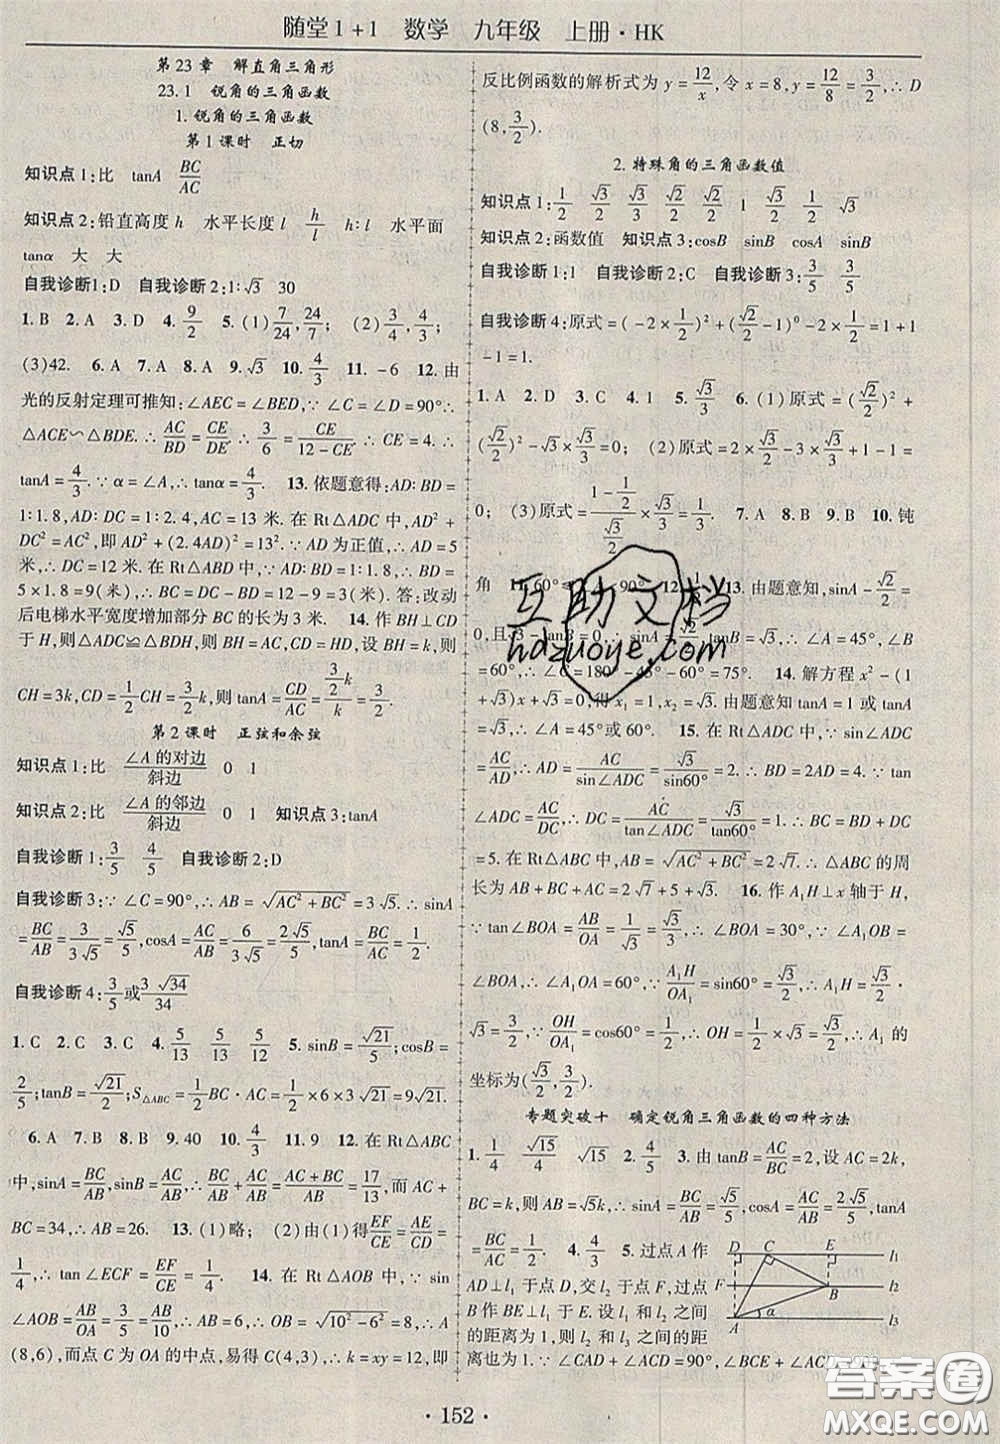 随堂1+1 数学 九年级 上册·HK
第23章 解直角三角形
23.1 锐角的三角函数
1.锐角的三角函数
第1课时 正切
知识点1:比 tanA BC/AC
知识点2:铅直高度h 水平长度l h/l h∶l 水平面
tanα 大 大
自我诊断1:D 自我诊断2:1∶√3 30
1.B 2.A 3.D 4.9/2 5.(1)7/24,24/7;(2)3/4,4/3;
(3)42. 6.A 7.A 8.A 9.√3 10.4/3 11.-6 12.由
光的反射定理可推知:∠AEC=∠BED,∵∠C=∠D=90°∴
△ACE∽△BDE.∴AC/BD=CE/DE∴3/6=CE/(12-CE)∴CE=4.∴
tanA=4/3.∵α=∠A,∴tanα=4/3. 13.依题意得:AD∶BD=
1∶1.8,AD∶DC=1∶2.4,AC=13米.在Rt△ADC中,AD²+
DC²=AC²,即AD²+(2.4AD)²=13².∵AD为正值,∴AD=5
米,∴DC=12米.在Rt△ABD中,∵AD∶BD=1∶1.8,∴BD=
5×1.8=9(米),∴BC=DC-BD=12-9=3(米).答:改动
后电梯水平宽度增加部分BC的长为3米. 14.作BH⊥CD
于H,则△ADC≌△BDH,则BH=AC,CD=HD,设BH=k,则
CH=3k,CD=1/2CH=3/2k,则tanA=CD/AC=(3/2k)/k=3/2.
第2课时 正弦和余弦
知识点1:比 ∠A的对边/斜边 0 1
知识点2:比 ∠A的邻边/斜边 0 1 知识点3:tanA
自我诊断1:3/5 4/5 自我诊断2:D
自我诊断3:∵∠C=90°,∴AB=√(AC²+BC²)=3√5.∴sinA
=BC/AB=3/(3√5)=√5/5,cosA=AC/AB=6/(3√5)=2√5/5,tanA=BC/AC=1/2.
自我诊断4:3/5或3√34/34
1.C 2.C 3.C 4.5/13 5/13 5/12 5.sinB=√21/5;cosB=
2/5;tanB=√21/2;S△ABC=1/2BC·AC=1/2×6×3√21=9√21.
6.A 7.B 8.B 9.40 10.4/3 11.9 12.在Rt△ABC
中,sinA=BC/AB,sinB=AC/AB,∴BC/AB+AC/AB=(AC+BC)/AB=17/13,而AC+
BC=34,∴AB=26. 13.(1)略;(2)由(1)得EF/CE=AE/CD=
1/4,∴tan∠ECF=EF/CE=1/4. 14.在Rt△AOB中,∵sin
∠AOB=AB/OA=3/5=AB/10,∴AB=6,∴OB=√(10²-6²)=8,∴A
(8,6),而点C为OA的中点,易得C(4,3)∴k=xy=12,即
反比例函数的解析式为y=12/x,令x=8,y=12/8=3/2,∴D
(8,3/2).
2.特殊角的三角函数值
知识点1:1/2 √3/2 √3/3 √2/2 √2/2 1 √3/2 1/2 √3
知识点2:函数值 知识点3:cosB sinB cosA sinB
自我诊断1:1 自我诊断2:C 自我诊断3:3/5 3/5
自我诊断4:原式=(-2×1/2)²+(√2/2-1)⁰-2×1/2=1+1
-1=1.
1.A 2.D 3.C 4.1 5.√3/3 6.(1)原式=(√2/2)²+
(√2/2)²-√3×√3/3=0;(2)原式=-2+√3×√3/3+1-1=
0;(3)原式=(1-1/2)/(√3/2)×√3/3=1/3. 7.A 8.B 9.B 10.钝
13.由题意知,sinA-√2/2
=0,且√3-tanB=0,∴sinA=√2/2,tanB=√3.∴∠A=45°,∠B
=60°,∴∠C=180°-45°-60°=75°. 14.解方程x²-(1
+√3)x+√3=0,得,x₁=1,x₂=√3.由题意知tanA=1或tanA
=√3,∴∠A=45°或60°. 15.在Rt△ADC中,∵sin∠ADC
=AC/AD,∴AD=AC/sin∠ADC=√3/sin60°=2.∴BD=2AD=4.∵tan
∠ADC=AC/DC,∴DC=AC/tan∠ADC=√3/tan60°=1.∴BC=BD+DC
=5.在Rt△ABC中,AB=√(AC²+BC²)=2√7.∴△ABC的周
长为AB+BC+AC=2√7+5+√3. 16.作A₁H⊥x轴于H,
∵tan∠BOA=AB/OA=1/√3=√3/3,∴∠BOA=30°,∵∠A₁OB=
∠BOA,∴∠A₁OH=60°.∵A₁H/OA₁=sin60°=√3/2,∴A₁H=√3/2·
√3=3/2,∵OH/OA₁=cos60°=1/2,∴OH=1/2×√3=√3/2,∴A₁的
坐标为(√3/2,3/2).
专题突破十 确定锐角三角函数的四种方法
1.1/4 √15/4 √15 2.4/5 3.由tanB=AC/BC=2,设AC=2k,
BC=k,则AB=√5k.∴sinA=BC/AB=√5/5,cosA=AC/AB=2√5/5,tanA
=BC/AC=1/2. 4.4/3 5.过点A作
AD⊥l₁于点D,交l₂于点F,过点
B作BE⊥l₁于E.设l₁和l₂之间
的距离为1,则l₂和l₃之间的距
离也为1.∵∠CAD+∠ACD=90°,∠BCE+∠ACD=90°,
D C E l₁
F B l₂
A α l₃
互助文档
hdzuoye.com
答案圈
MXQE.COM
·152·